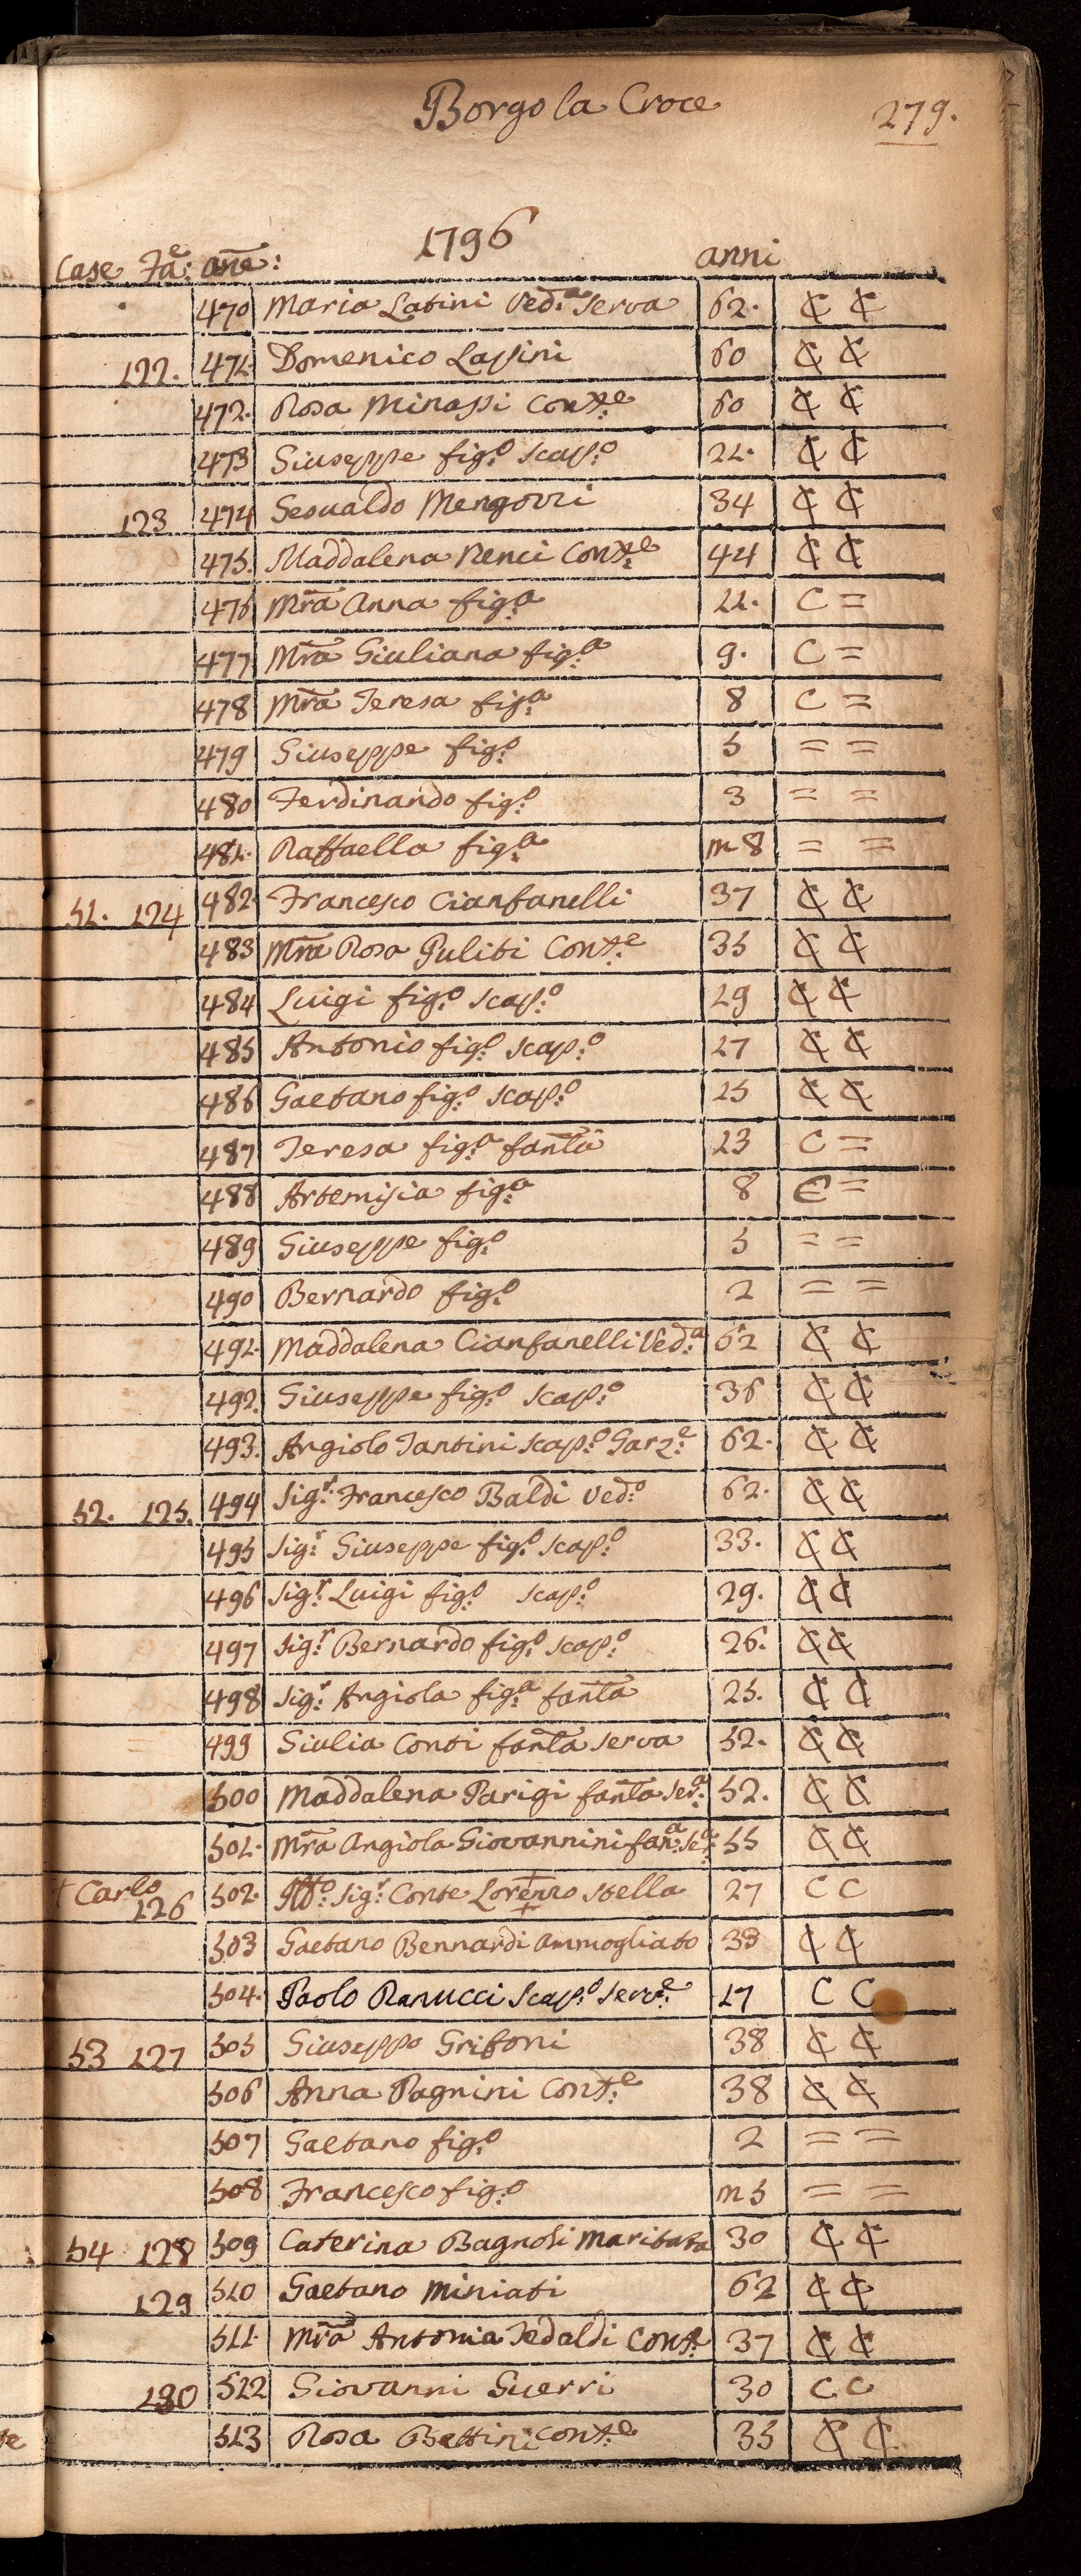 Borgo la Croce
279.
1796
Case Fa:e ane: anni
470 Maria Latini Ved:a Serva 62. C C
122. 471. Domenico Lassini 60 C C
472. Rosa Minassi Cont:e 60 C C
473 Giuseppe fig:o scap:o 21. C C
123 474 Gesualdo Mengozzi 34 C C
475. Maddalena Nenci Cont:e 44 C C
476 Mra Anna fig:a 11. C =
477 Mra Giuliana fig:a 9. C =
478 Mra Teresa fig:a 8 C =
479 Giuseppe fig:o 5 = =
480 Ferdinando fig:o 3 = =
481. Raffaella fig:a m 8 = =
51. 124 482. Francesco Cianfanelli 37 C C
483 Mra Rosa Puliti Cont:e 35 C C
484 Luigi fig:o scap:o 29 C C
485 Antonio fig:o scap:o 27 C C
486 Gaetano fig:o scap:o 25 C C
487 Teresa fig:a fanta 13 C =
488 Artemisia fig:a 8 C =
489 Giuseppe fig:o 5 = =
490 Bernardo fig:o 2 = =
491. Maddalena Cianfanelli Ved:a 62 C C
492. Giuseppe fig:o scap:o 36 C C
493. Angiolo Santini scap:o Garz:e 62. C C
52. 125. 494 Sig:r Francesco Baldi Ved:o 62. C C
495 Sig:r Giuseppe fig:o scap:o 33. C C
496 Sig:r Luigi fig:o scap:o 29. C C
497 Sig:r Bernardo fig:o scap:o 26. C C
498 Sig:r Angiola fig:a fanta 25. C C
499 Giulia Conti fanta serva 52. C C
500 Maddalena Parigi fanta ser:a 52. C C
501. Mra Angiola Giovannini fan:a se:a 55 C C
† Carlo
126 502. Ill:o Sig:r Conte Lorenzo Stella 27 C C
503 Gaetano Bennardi Ammogliato 33 C C
504. Paolo Ranucci Scap:o Serv:e 17 C C
53 127 505 Giuseppo Grifoni 38 C C
506 Anna Pagnini Cont:e 38 C C
507 Gaetano fig:o 2 = =
508 Francesco fig:o m 5 = =
54 128 509 Caterina Bagnoli Maritata 30 C C
129 510 Gaetano Miniati 62 C C
511. Mra Antonia Tedaldi Cont:e 37 C C
130 512 Giovanni Guerri 30 C C
513 Rosa Bettini Cont:e 35 C C